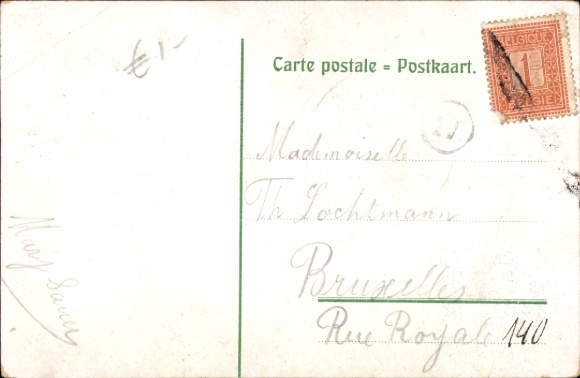 €1-
Carte postale = Postkaart.
BELGIQUE
1
BELGIË
Mademoiselle
Th Lochtmann
Bruxelles
Rue Royale 140
Mary